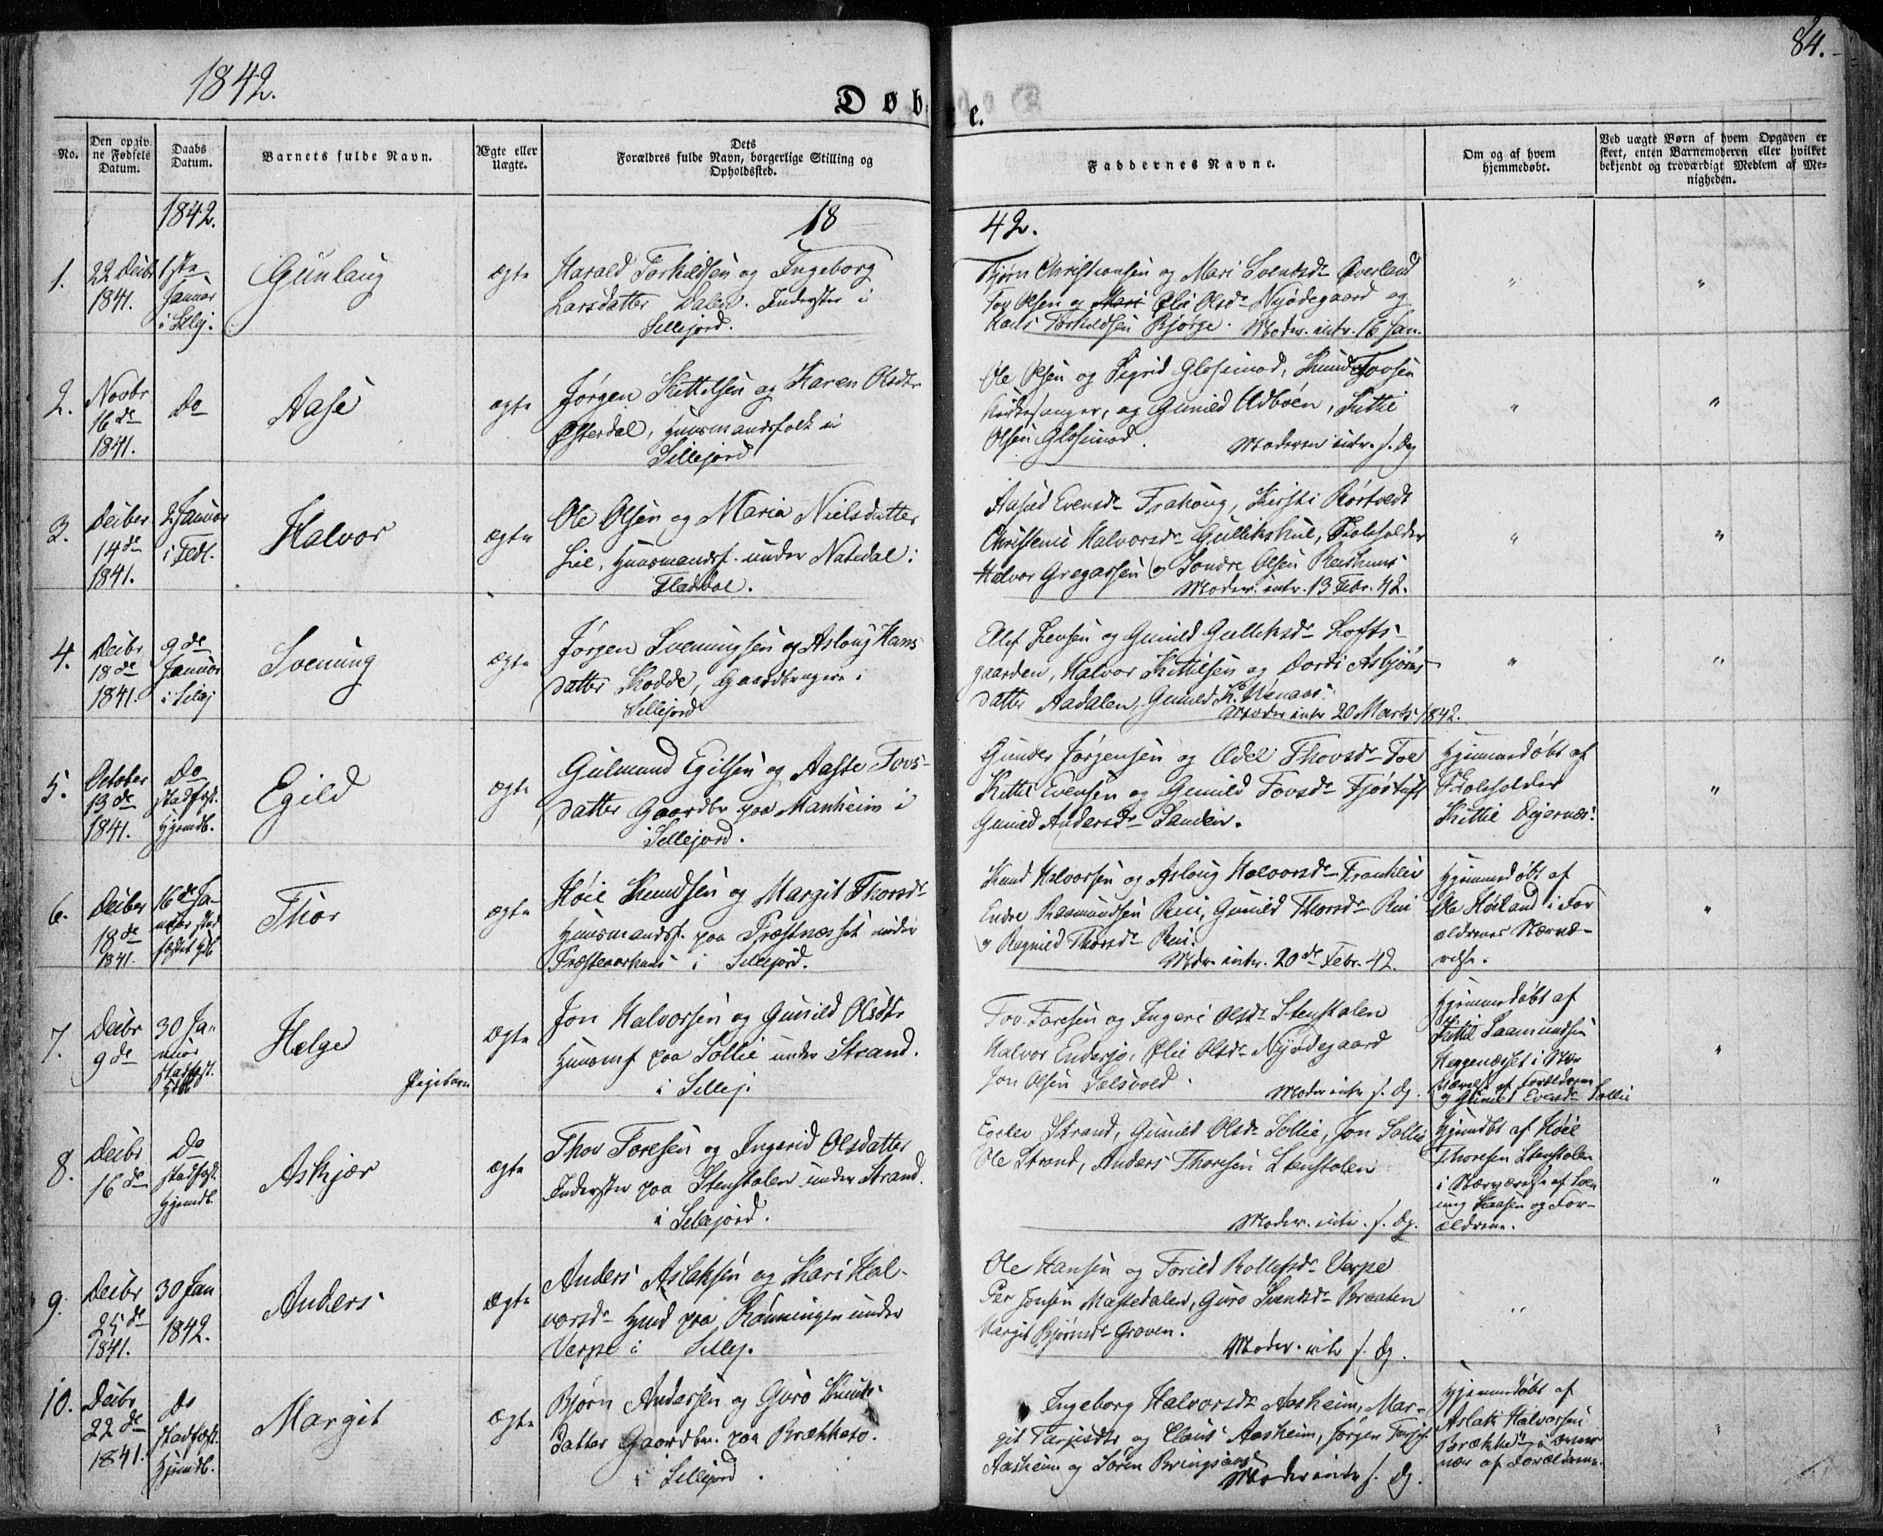 1842.
84.
Døbte.
No.
Den opgivne Fødsels Datum.
Daabs Datum.
Barnets fulde Navn.
Ægte eller Uægte.
Dets Forældres fulde Navn, borgerlige Stilling og Opholdssted.
Faddernes Navne.
Om og af hvem hjemmedøbt.
Ved uægte Børn af hvem Opgaven er skeet, enten Barnemoderen eller hvilket bekjendt og troværdigt Medlem af Menigheden.
1842.
18
42.
1.
22 Decbr
1841.
1ste
Januar
i Sillej.
Gunlaug
ægte
Harald Torkildsen og Ingeborg
Larsdatter Dalen. Inderster i
Sillejord.
Bjørn Christiansen og Mari Svendsdr Øverland
Tov Olsen og Mari Olie Olsdr Nyødegaard og
Hans Torkildsen Bjørge. Moder. intr. 16 Jan.
"
"
2.
Novbr
16de
1841.
Do
Aase
ægte
Jørgen Kittilsen og Karen Olsdtr
Østerdal, Huusmandsfolk i
Sillejord
Ole Olsen og Sigrid Glosimod, Knud Tovsen
Kirkesanger, og Gunild Udbøen, Kittil
Olsen Glosimod. Moderen intr. s. Dg
"
"
3.
Decber
14de
1841.
2 Januar
i Fladl.
Halvor
ægte
Ole Olsen og Maria Nielsdatter
Lie, Huusmandsf. under Natedal i
Fladdal.
Aasad Evensdr Trahaug, Kirsti Rørtvedt
Christine Halvorsdr Gullikshul, Skoleholder
Halvor Gregarsen og Sondre Olsen
Moder. intr. 13 Febr. 42.
"
"
4.
Decbr
18de
1841.
9de
Januar
i Sillej
Svenung
ægte
Jørgen Svenungsen og Aslaug Hans
datter Kodde, Gaardbrugere i
Sillejord
Ellef Levsen og Gunild Gulliksdr Lofts-
gaarden, Halvor Kittilsen og Dordi Asbjørns
datter Aadalen, Gunild K.
Moder intr 20 Marts 1842.
"
"
5.
October
13de
1841.
Do
stadfæst.
Hjemdb.
Egild
ægte
Gulmund Egilsen og Aaste Tovs-
datter Gaardbr paa Manheim i
Sillejord.
Gunder Jørgensen og Odel Thovsdr Foe
Kittil Evensen og Gunild Tovsdr Fjøstuft
Gunild Andersdr Sanden.
Hjemmedøbt af
Skoleholder
Kittil
"
6.
Decber
18de
1841.
16de Ja-
nuar stad
fæstet
Thor
ægte
Høie Knudsen og Margit Thorsdr
Huusmandsf. paa Præstnæsset under
Præsteaarhuus i Sillejord.
Knud Halvorsen og Aslaug Halvorsdr
Endre Rasmundsen Rui, Gunild Thorsdr Rui
og Ragnild Thorsdr Rui.
Moder. intr. 20de Febr. 42.
Hjemmedøbt af
Ole i For
ældrenes Nærvæ-
relse.
"
7.
Decbr
9de
30 Ja-
nuar
stadfæst.
Helge
Pigebarn
ægte
Jon Halvorsen og Gunild Olsdtr
Huusmf paa Sollie under Strand.
i Sillej.
Tov Toresen og Ingeri Olsdr Stenstolen
Halvor Endersjo, Olie Olsdr Nyødegaard
Jon Olsen Selsvold.
Moder intr s. Dg.
Hjemmedøbt af
Kittil Saamundsen
i Nær
værelse af Forældrene
og Gunild Evensdr Sollie
"
8.
Decbr
16de
Do
stadfæst.
Hjemdb.
Askjær
ægte
Thov Toresen og Ingerid Olsdatter
Inderster paa Stenstolen under Strand.
i Sillejord.
Egelev Strand, Gunild Olsdr Sollie, Jon Sollie
Ole Strand, Anders Thoresen Stenstolen
Moder. intr. s. Dg.
Hjemdbt af Høie
Thoresen Stenstolen
i Nærværelse af Sven
ung og For-
ældrene.
"
9.
Decbr
25de
1841.
30 Jan
1842.
Anders
ægte
Anders Aslaksen og Kari Hal-
vorsdr Hmd paa Rønningen under
Verpe i Sillej.
Ole Hansen og Torild Rollefsdr Verpe
Per Jonsen Mastedalen, Guro Svendsdr Braaten
Margit Bjørnsdr Groven.
Moder. intr s. Dg.
"
10.
Decbr
22de
1841.
Do
stadfæst.
Hjemdb.
Margit
ægte
Bjørn Andersen og Guro Knuds
datter Gaardbr. paa Brækketo.
i Sillejord.
Ingeborg Halvorsdr Aasheim, Mar-
git Tarjesdtr og Claus Aasheim, Jørgen Tarjes
Aasheim og Søren
Moder intr s. Dg.
Hjemmedøbt af
Aslak Halvorsen
Brække
nær af Forældrene.
"